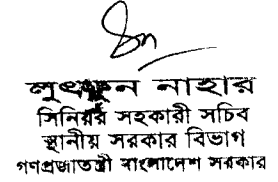 লুৎফুন নাহার
সিনিয়র সহকারী সচিব
স্থানীয় সরকার বিভাগ
গণপ্রজাতন্ত্রী বাংলাদেশ সরকার